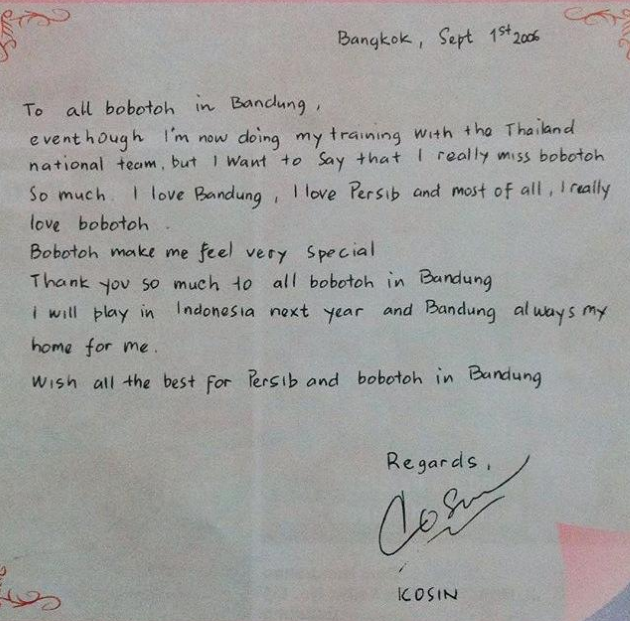 Bangkok, Sept 1st 2006
To all bobotoh in Bandung,
eventhough I'm now doing my training with the Thailand
national team, but I want to say that I really miss bobotoh
So much. I love Bandung, I love Persib and most of all, I really
love bobotoh.
Bobotoh make me feel very special
Thank you so much to all bobotoh in Bandung
i will play in Indonesia next year and Bandung always my
home for me.
Wish all the best for Persib and bobotoh in Bandung
Regards,
Kosin
KOSIN